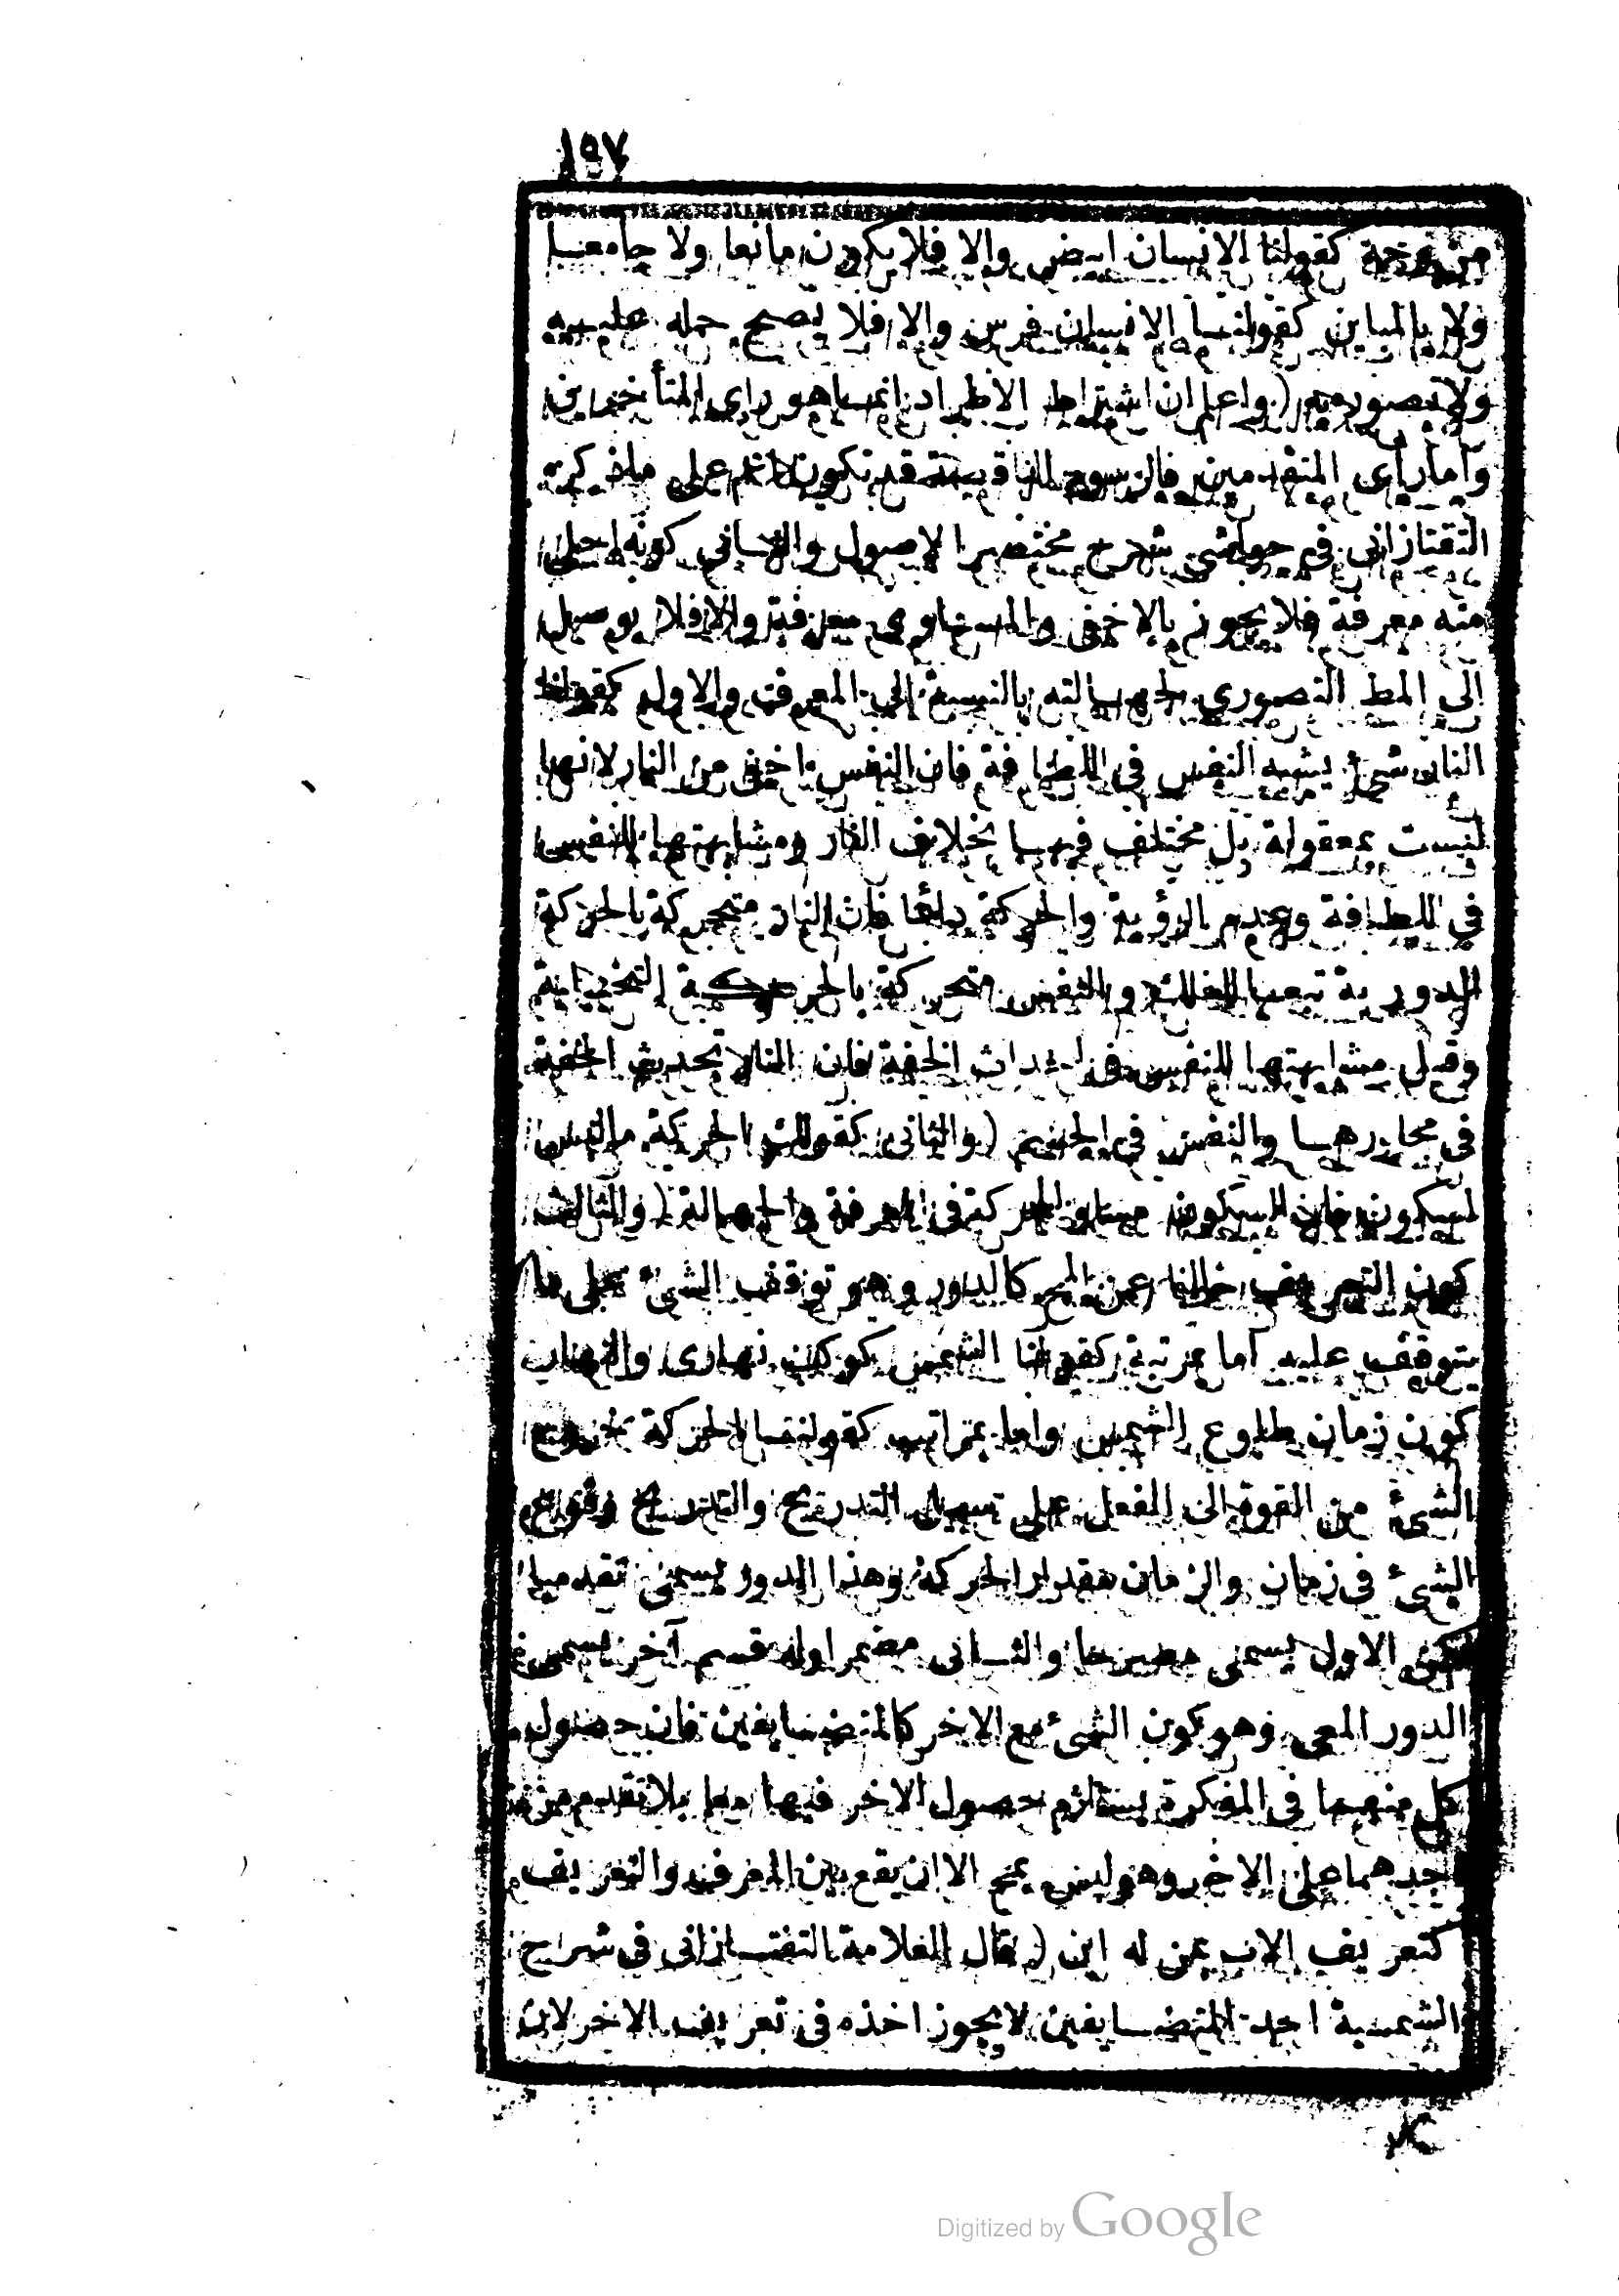 ١٩٧
من وجه كقولنا الانسان ابيض والا فلا يكون مانعا ولا جامعا
ولا بالمباين كقولنا الانسان فرس والا فلا يصح حمله عليه
ولا تصوره به (واعلم ان اشتراط الاطراد انما هو راى المتأخرين
واما رأى المتقدمين فالرسوم الناقصة قد تكون اعم على ما ذكره
التفتازانى فى حواشى شرح مختصر الاصول والثانى كونه اجلى
منه معرفة فلا يجوز بالاخفى والمساوى معرفة والا فلا يوصل
الى المط التصورى لجهالته بالنسبة الى المعرف والاول كقولنا
النار شئ يشبه النفس فى اللطافة فان النفس اخفى من النار لانها
ليست بمعقولة بل مختلف فيها بخلاف النار ومشابهتها للنفس
فى اللطافة وعدم الرؤية والحركة دائما فان النار متحركة بالحركة
الدورية تبعا للفلك والنفس متحركة بالحركة
وقيل مشابهتها للنفس فى احداث الخفة فان النار تحدث الخفة
فى مجاورها والنفس فى الجسم (والثانى كقولك الحركة ماليس
لسكون فان السكون مساو للحركة فى المعرفة والجهالة (والثالث
كون التعريف خاليا عن المح كالدور وهو توقف الشئ على ما
يتوقف عليه اما بمرتبة كقولنا الشمس كوكب نهارى والنهار
كون زمان طلوع الشمس واما بمراتب كقولنا الحركة خروج
الشئ من القوة الى الفعل على سبيل التدريج والتدريج وقوع
الشئ فى زمان والزمان مقدار الحركة وهذا الدور يسمى تقدميا
لكن الاول يسمى مصرحا والثانى مضمرا وله قسم آخر يسمى
الدور المعى وهو كون الشئ مع الاخر كالمتضايفين فان حصول
كل منهما فى المفكرة يستلزم حصول الاخر فيها معا بلا تقدم من
احدهما على الاخر وهو ليس بمح الا ان يقع بين المعرف والتعريف
كتعريف الاب بمن له ابن (قال العلامة التفتازانى فى شرح
الشمسية احد المتضايفين لا يجوز اخذه فى تعريف الاخر لان
Digitized by Google